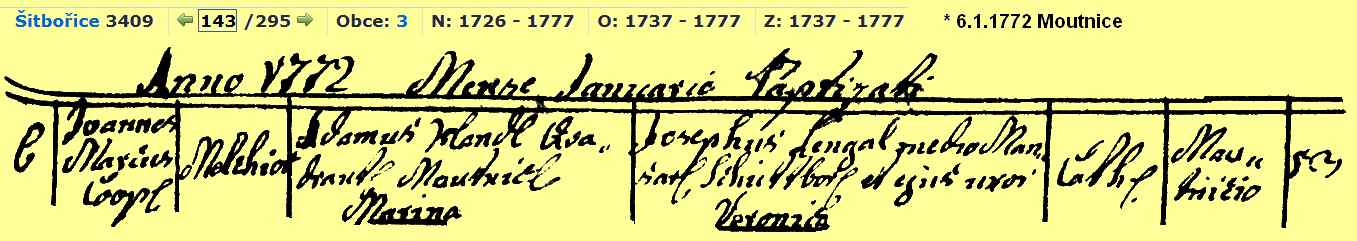 Šitbořice 3409 143 /295 Obce: 3 N: 1726 - 1777 O: 1737 - 1777 Z: 1737 - 1777 * 6.1.1772 Moutnice
Anno 1772 Mense Januario Baptizati
6 Joannes Marius Coopl
Melchior
Adamus Handl Qva„
drantl Moutnicl
Marina
Josephus Lengal medio Man„
siatl Schüttborl et ejus uxor
Veronica
Cathl.
Mou„
tnicio
52